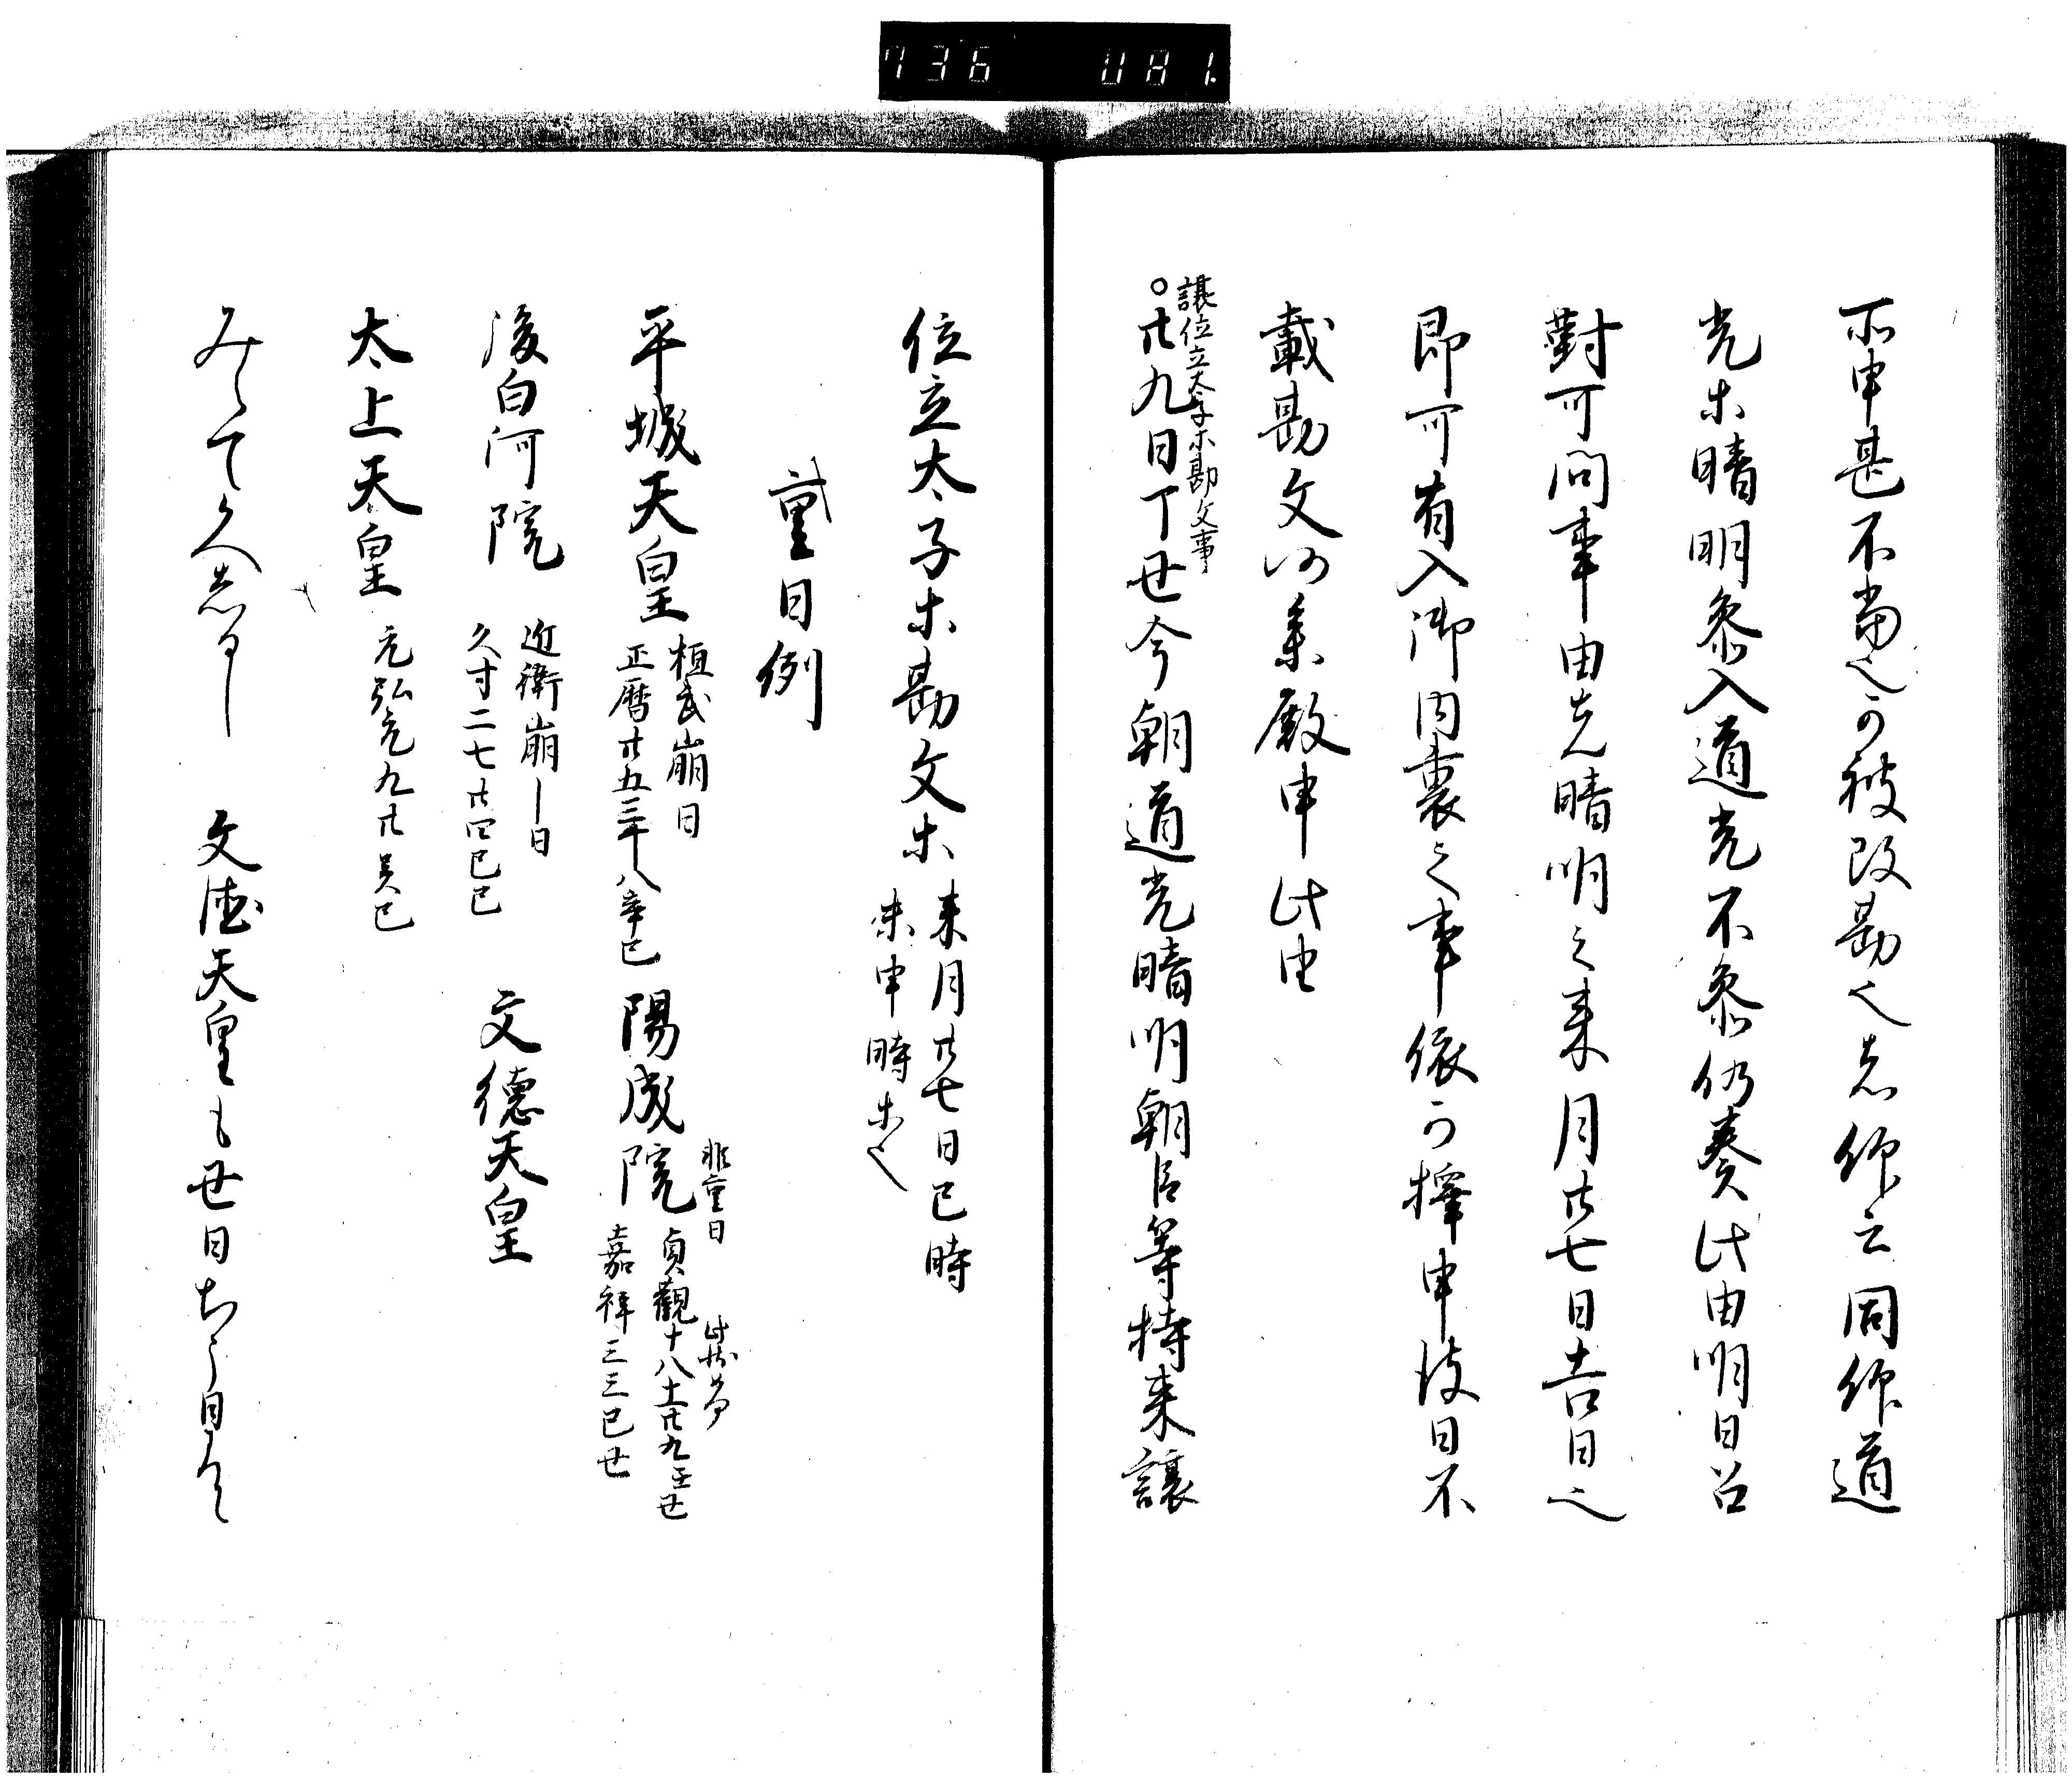 736 081
所申甚不当也可被改勘也者仰云同仰道
光木晴明参入道光不参仍奏此由明日召
對可問事由先晴明云来月廿七日吉日也
即可有入御内裏之事依可擇申彼日不
載勘文仍参殿申此由
讓位立太子木勘文事
○廿九日丁丑今朝道光晴明朝臣等持来讓
位立太子木勘文木 来月廿七日巳時
未申時木也
重日例
平城天皇 桓武崩日
正暦廿五三年八辛巳
陽成院 非重日
貞観十八十一廿九壬丑
嘉祥三三巳丑
後白河院 近衛崩〡日
久寸二七廿四己巳
文徳天皇
太上天皇 元弘元九廿 癸巳
文徳天皇も丑日